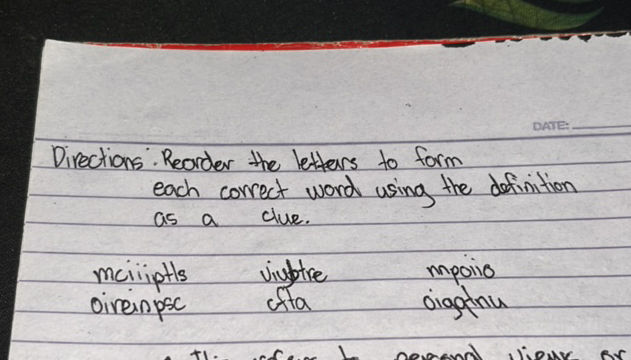 DATE:
Directions: Reorder the letters to form
each correct word using the definition
as a clue.
mciiiptls viubtre mpoiio
oireinpsc cfta
personal views or